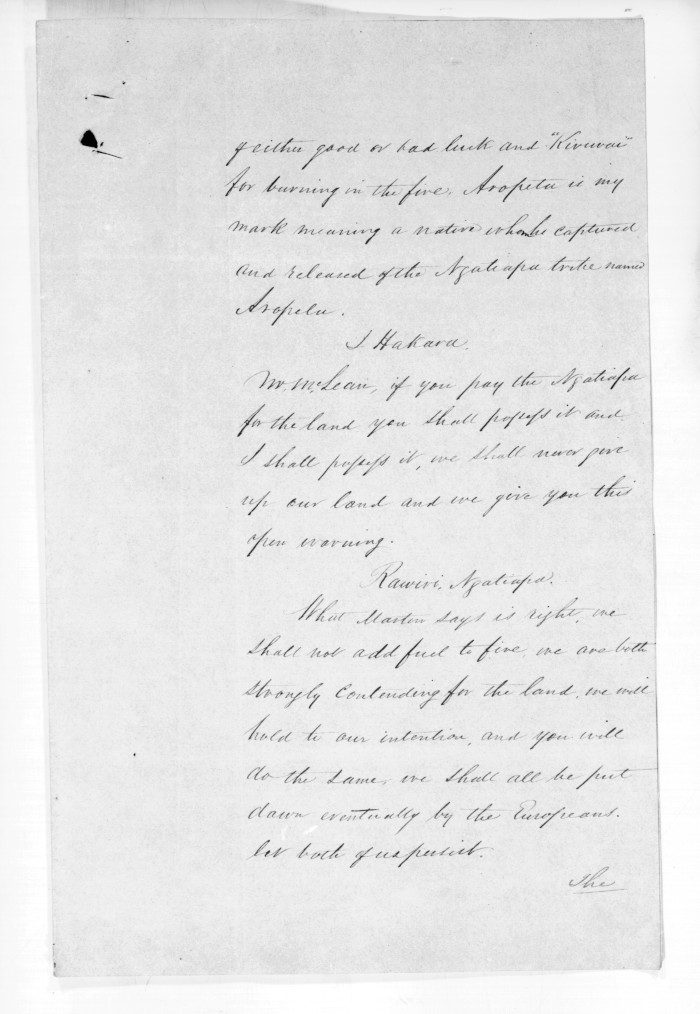 of either good or bad luck and "Kiruwai"
for burning in the fire, Aropeta is my
mark meaning a native whom he captured
and released of the Ngatiapa tribe named
Aropeta.
J. Hakara.
Mr. McLean, if you pay the Ngatiapa
for the land you shall possess it and
I shall possess it, we shall never give
up our land and we give you this
open warning.
Rawiri, Ngatiapa.
What Martin says is right, we
shall not add fuel to fire, we are both
strongly contending for the land, we will
hold to our intention, and you will
do the same, we shall all be put
down eventually by the Europeans.
let both of us persist.
The